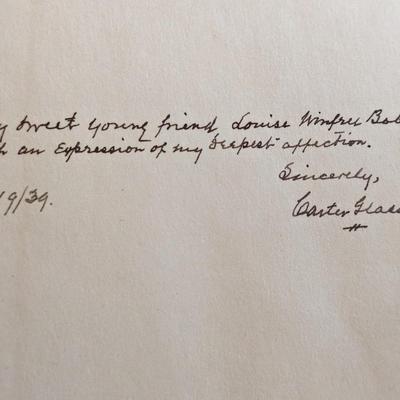 y sweet young friend, Louise Winfree Bo
h an Expression of my Deepest affection.
Sincerely,
19/39. Carter Glass